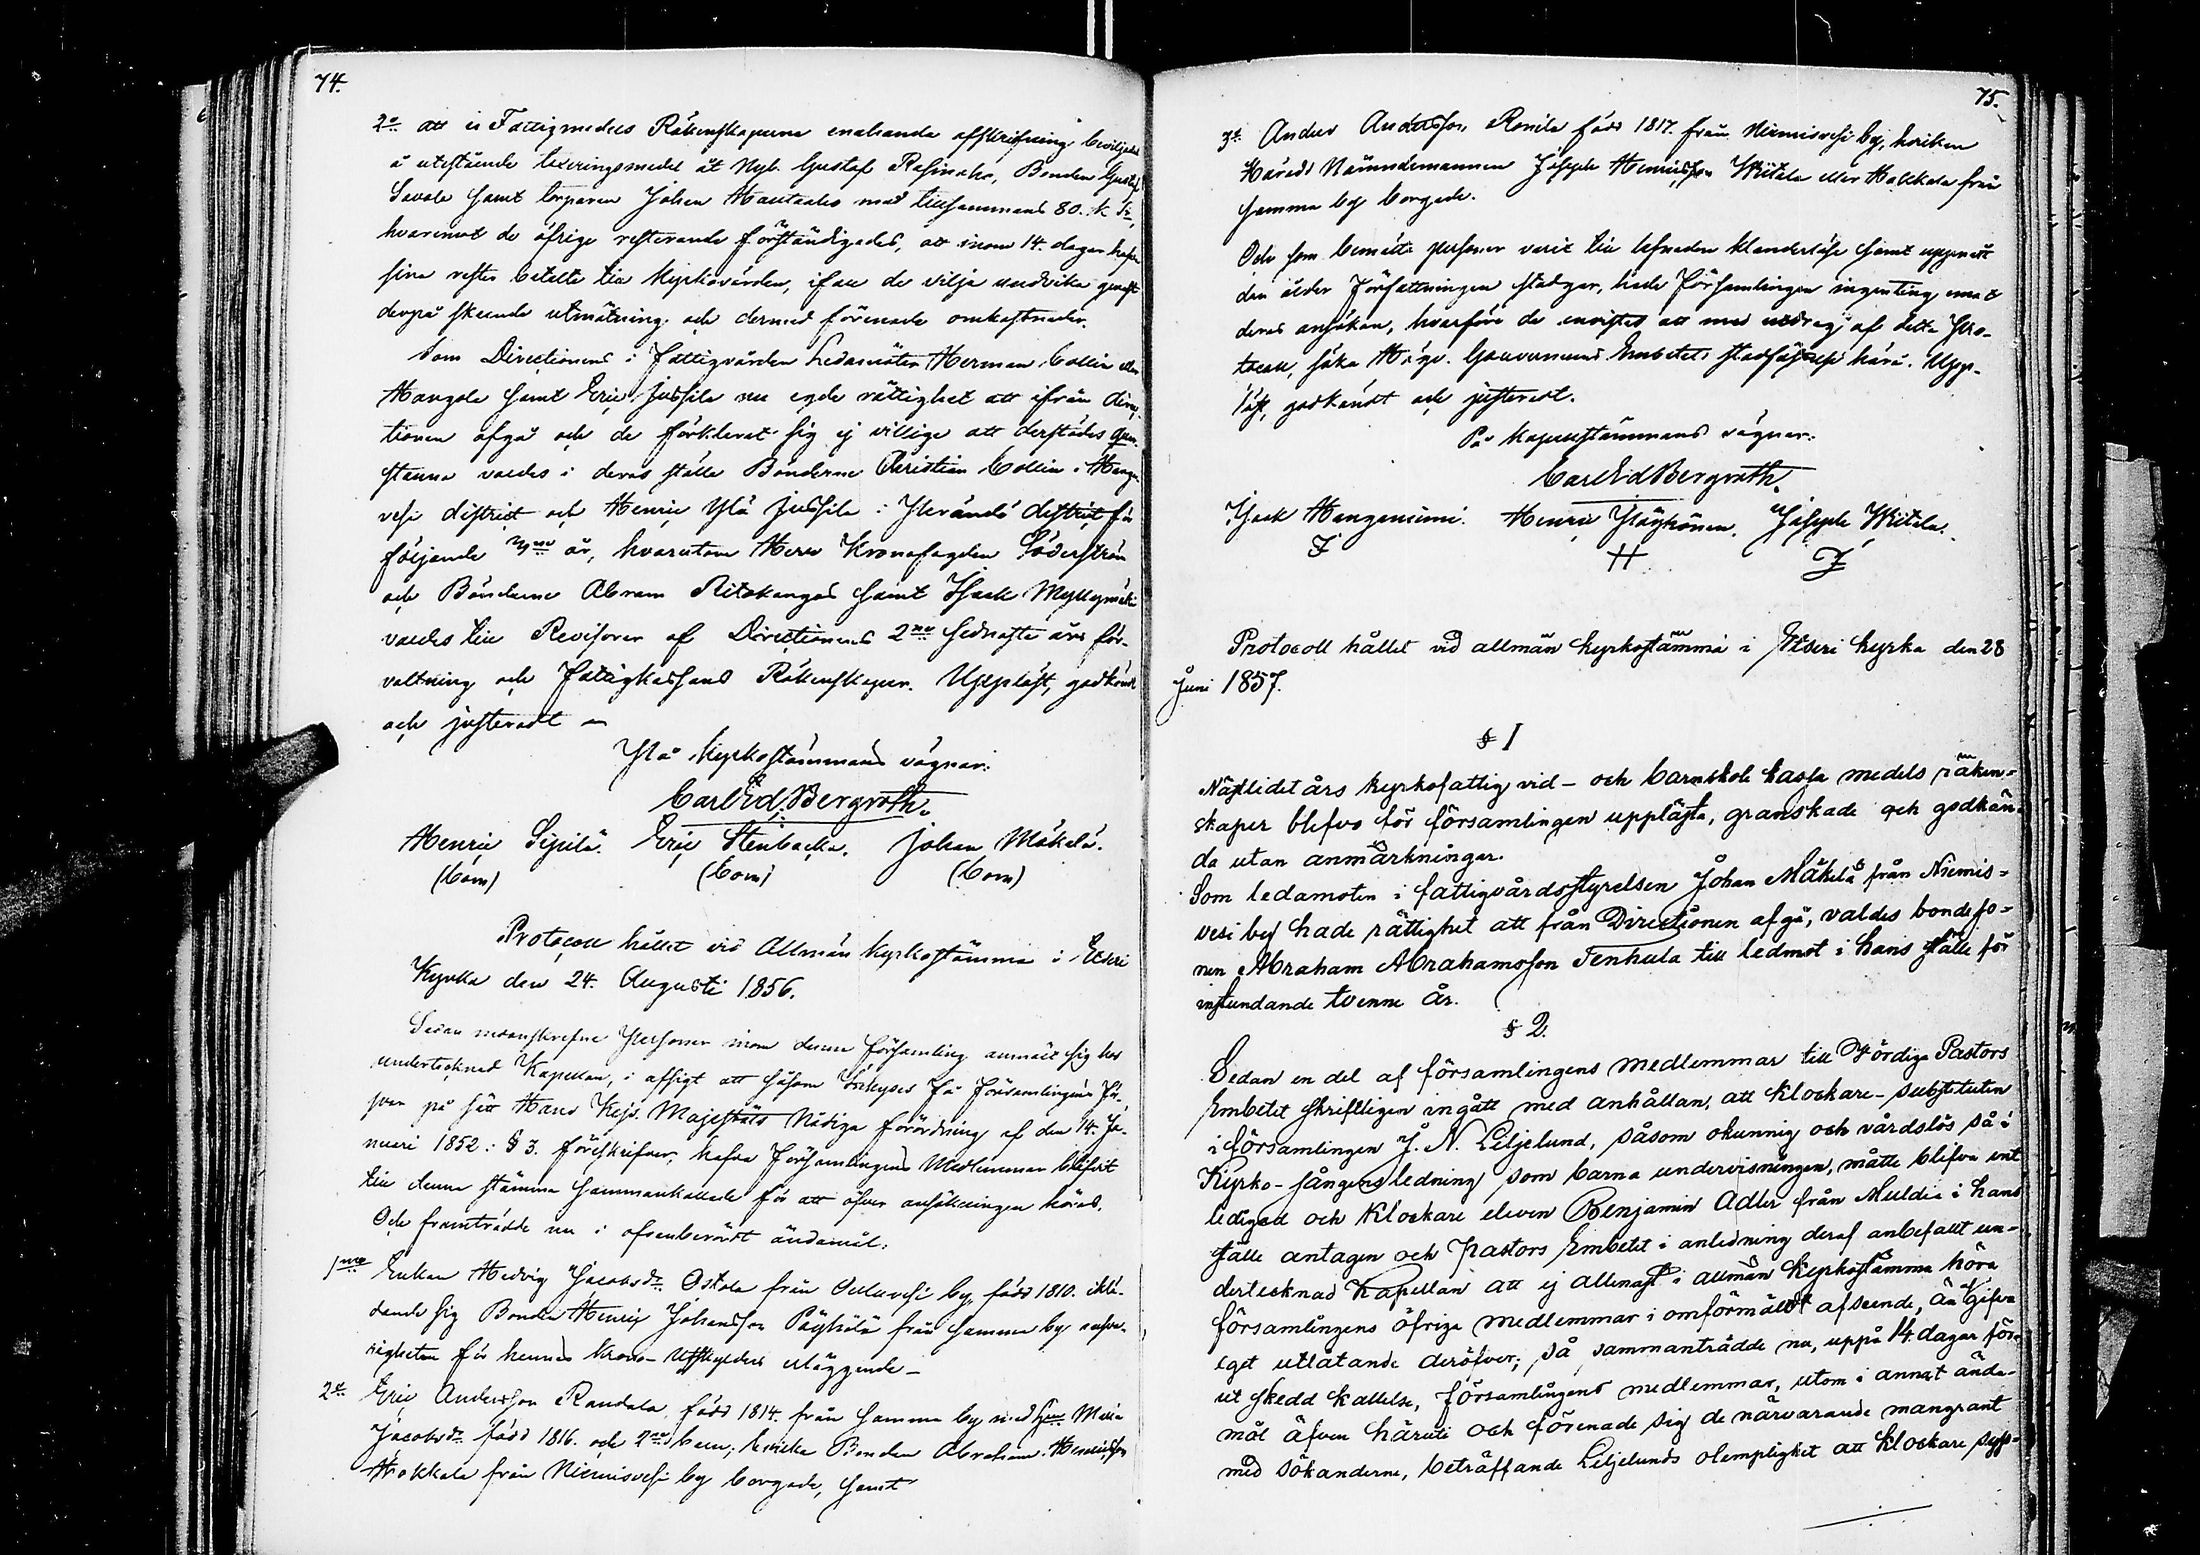 74.
2o att i Fattigmedels Räkenskaperna enahanda afskrifning beviljades
å utestående taxeringsmedel åt Nyb. Gustaf Rasinaho, Bonden Gustaf
Savola samt torparen Johan Hautaaho med tillsammans 80. k. Sr,
hvaremot de öfrige resterande förständigades, att inom 14. dagar hafva
sina rester betalte till Kyrkovärden, ifall de vilja undvika genast
derpå skeende utmätning och dermed förenade omkostnader.
Som Directionens i fattigvården Ledamöter Herman Collin eller
Mangola samt Eric Jussila nu egde rättighet att ifrån direc-
tionen afgå och de förklarat sig ej villige att derstädes qvar-
stanna valdes i deras ställe Bönderne Christian Collin i
vesi district och Henric Ylä Jussila i district för
följande år, hvarutom Herr Kronofogden Söderström
och Bönderne Abram Ritokangas samt Isaak Myllymäki
valdes till Revisorer af Directionens 2ne sednaste års för-
valtning och fattigkassans Räkenskaper. Uppläst, godkändt
och justeradt
På Kyrkostämmans vägnar:
Carl Ed. Bergroth.
Henric Sipilä. Eric Stenbacka. Johan Mäkelä.
(bom) (bom) (bom)
Protocoll hållit vid Allmän Kyrkostämma i Etseri
Kyrka den 24. Augusti 1856.
Sedan nedanskrefne Personer inom denna församling anmält sig hos
undertecknad Kapellan, i afsigt att såsom Inhyses få församlingens för-
svar på sätt Hans Kejs. Majestäts Nådiga förordning af den 14. Ja-
nuari 1852: § 3. föreskrifver, hafva församlingens Medlemmar blifvit
till denna stämma sammankallade för att öfver ansökningen höras.
Och framträdde nu i ofvanberördt ändamål:
1mo Enkan Hedvig Jacobsdr Ostola från by, född 1810. iklä-
dande sig Bonden Henric Johansson Päykölä från samma by ansva-
righeten för hennes Krono-Utskylders erläggande –
2o Eric Andersson Randala, född 1814. från samma by med Maria
Jacobsdr född 1816. och 2ne barn; hvilka Bonden Abraham Henricsson
Hokkala från Niemisvesi by borgade, samt
75.
3o Anders Andersson Ronila född 1817. från Niemisvesi by, hvilken
Härads Nämndemannen Joseph Henricsson Wiitala eller Hakkala från
samma by borgade.
Och som bemälte personer varit till lefnaden klanderlöse samt uppnått
den ålder författningen stadgar, hade församlingen ingenting emot
deras ansökan, hvarföre de anvistes att med utdrag af detta Pro-
tocoll, söka Högv. Gouvernements Embetets stadfästelse härå. Upp-
läst, godkändt och justeradt.
På Kapellstämmans vägnar:
Carl Ed Bergroth.
Isaak Hanganiemi. Henric Pläykönen. Joseph Wiitala.
I H J
Protocoll hållet vid allmän kyrkostämma i Etseri kyrka den 28
Juni 1857.
§ 1
Nästlidet års kyrkofattig vid – och barnskole kassa medels räken-
skaper blefvo för församlingen upplästa, granskade och godkän-
da utan anmärkningar.
Som ledamoten i fattigvårdsstyrelsen Johan Mäkelä från Niemis-
vesi by hade rättighet att från Directionen afgå, valdes bondeso-
nen Abraham Abrahamsson Tenhula till ledmot i hans ställe för
instundande tvenne år.
§ 2.
Sedan en del af församlingens medlemmar till Vördige Pastors
Embetet skriftligen ingått med anhållan, att klockare-substituten
i församlingen J. N. Liljelund, såsom okunnig och vårdslös så i
Kyrko-sångens ledning som barna undervisningen, måtte blifva ent
ledigad och Klockare eleven Benjamin Adler från Muldia i hans
ställe antagen och Pastors Embetet i anledning deraf anbefallt un-
dertecknad Kapellan att ej allenast i allmän Kyrkostämma höra
församlingens öfriga medlemmar i omförmäldt afseende, än gifva
eget utlåtande deröfver; så sammanträdde nu, uppå 14 dagar för-
ut skedd kallelse, församlingens medlemmar, utom i annat ända-
mål äfven häruti och förenade sig de närvarande mangrant
med sökanderne, beträffande Liljelunds olemplighet att klockare syss-